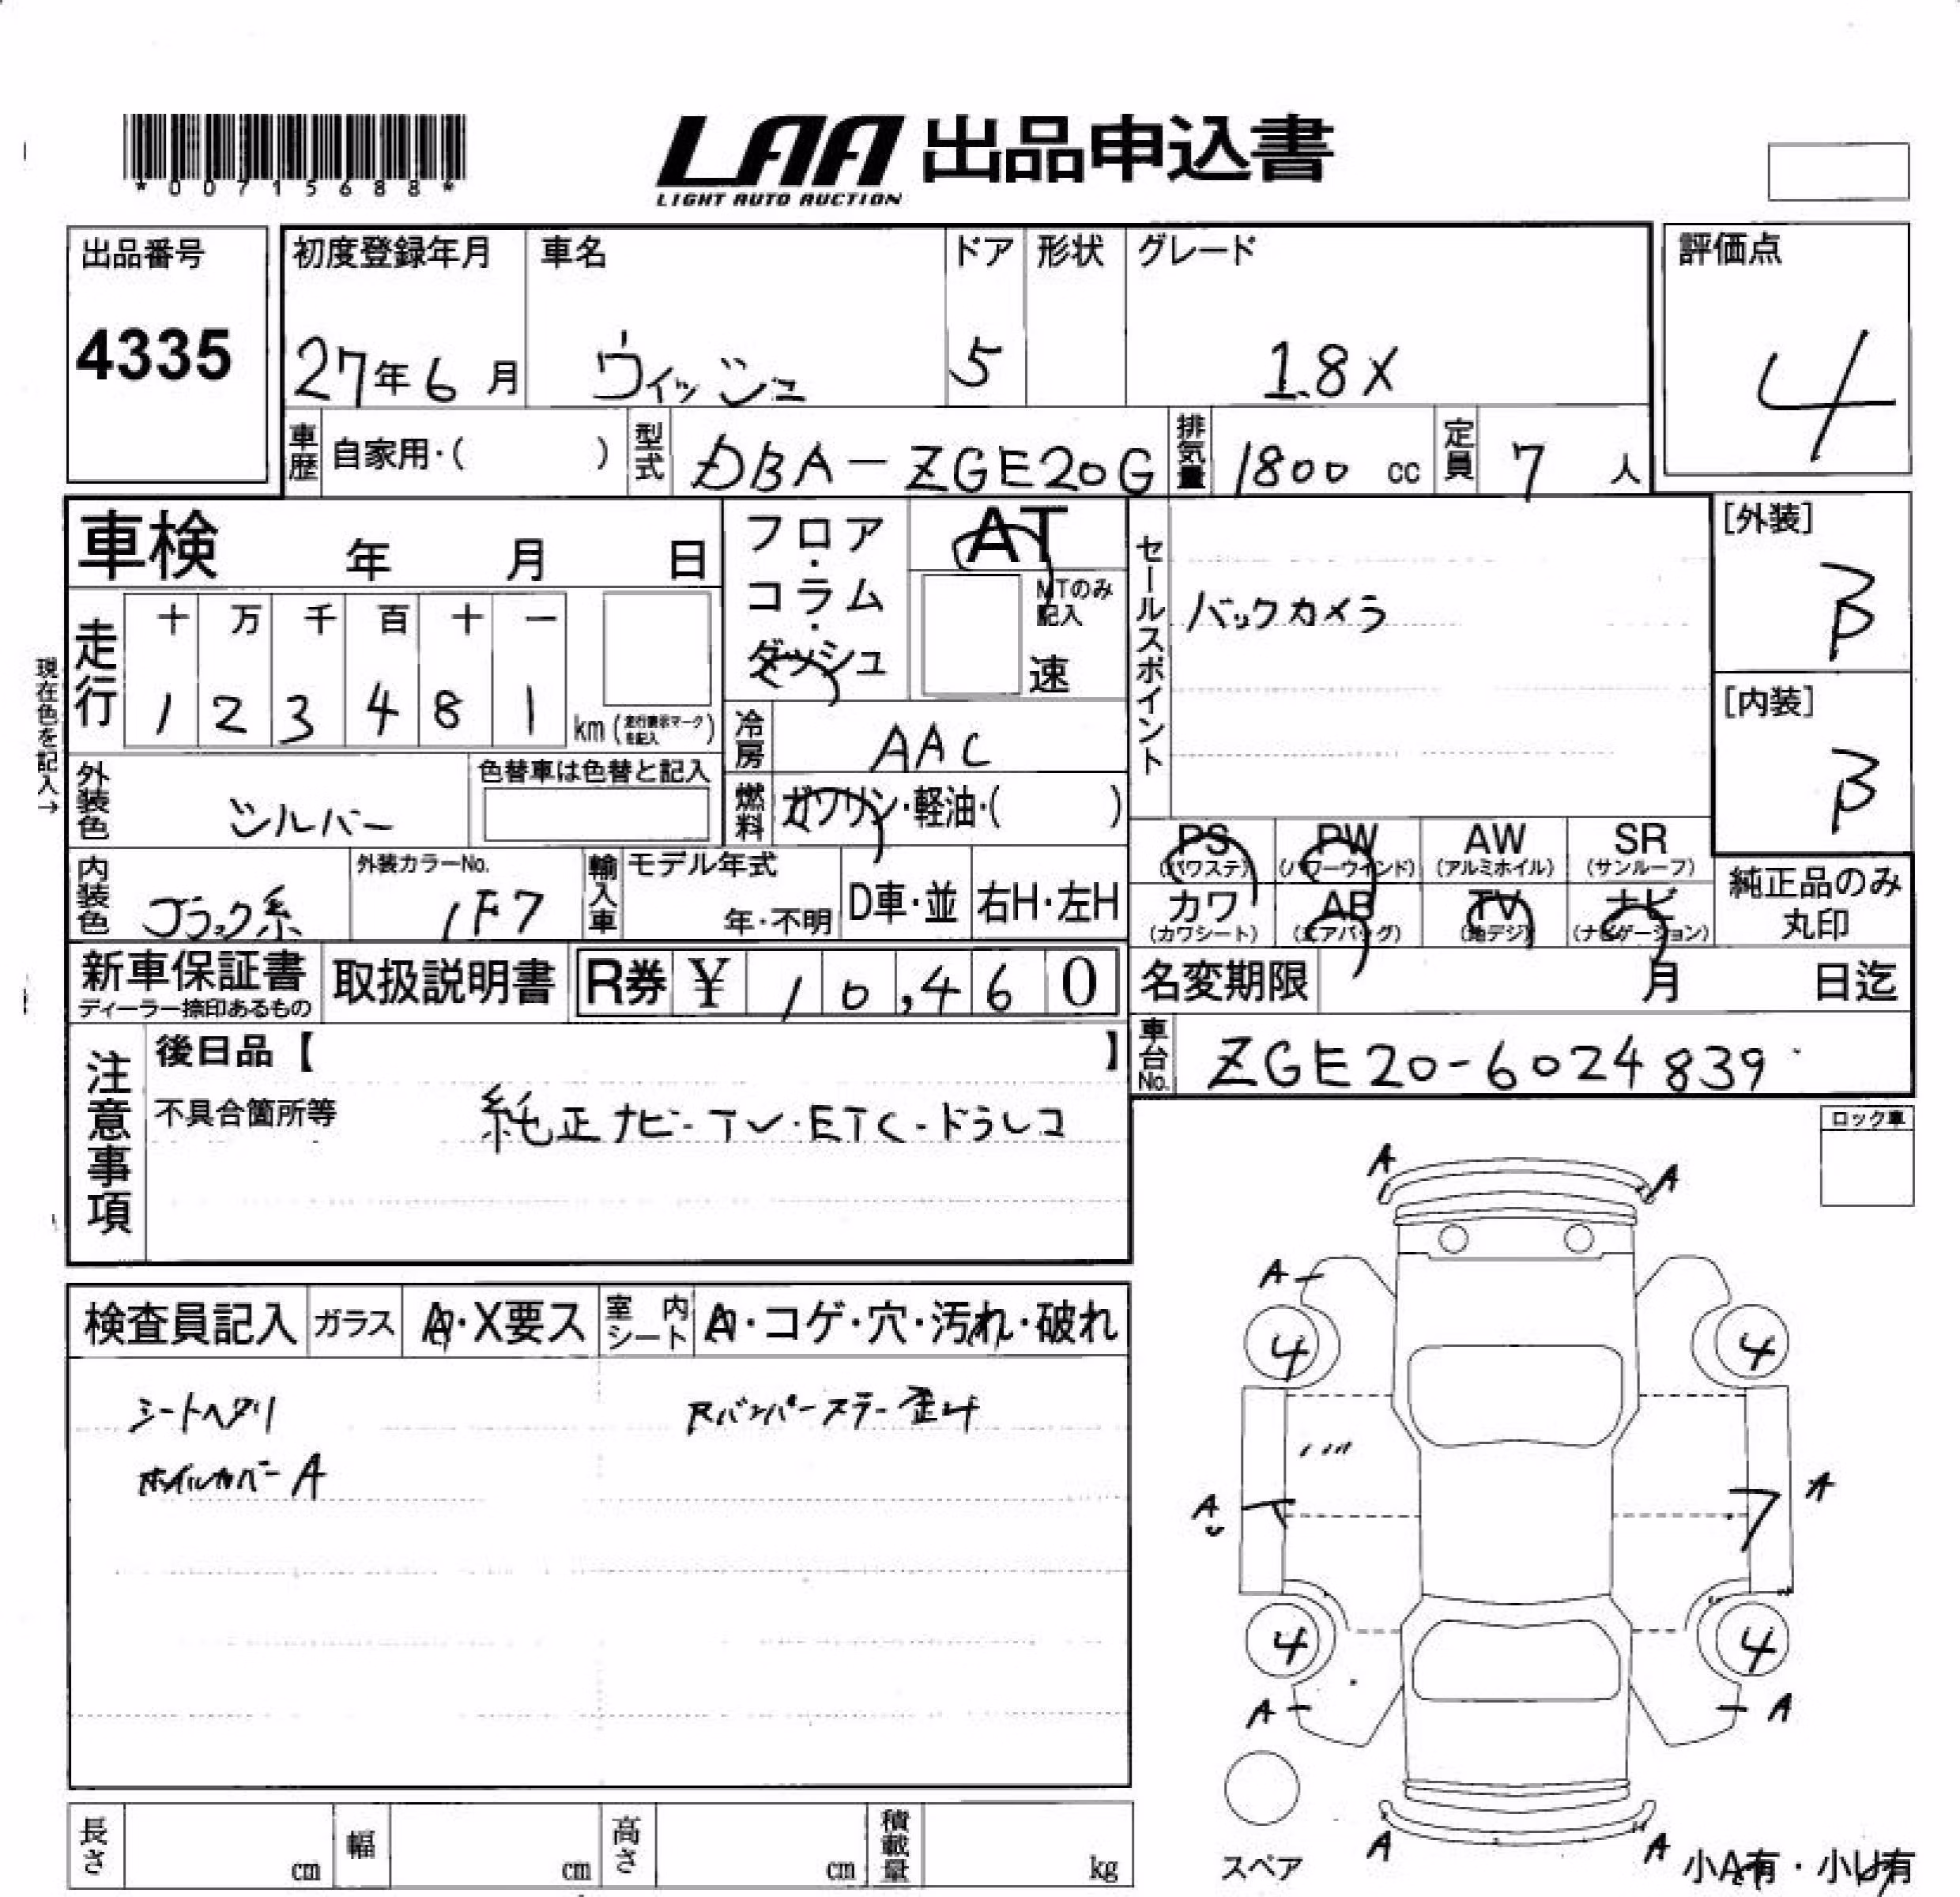 *00715688*
LAA 出品申込書
LIGHT AUTO AUCTION
出品番号
4335
初度登録年月
27年6月
車名
ウィッシュ
ドア
5
形状
グレード
1.8X
評価点
4
車歴 自家用・( )
型式 DBA-ZGE20G
排気量 1800 cc
定員 7 人
車検 年 月 日
フロア・コラム・ダッシュ
AT
MTのみ記入
速
セールスポイント
バックカメラ
[外装]
B
[内装]
B
現在色を記入→
走行
十 万 千 百 十 一
1 2 3 4 8 1
km (走行表示マークを記入)
冷房 AAC
燃料 ガソリン・軽油・( )
外装色 シルバー
色替車は色替と記入
内装色 ブラック系
外装カラーNo.
1F7
輸入車
モデル年式
年・不明
D車・並
右H・左H
PS (パワステ)
PW (パワーウインド)
AW (アルミホイル)
SR (サンルーフ)
カワ (カワシート)
AB (エアバッグ)
TV (地デジ)
ナビ (ナビゲーション)
純正品のみ丸印
新車保証書
ディーラー捺印あるもの
取扱説明書
R券 ¥ 10,460
名変期限 月 日迄
車台No. ZGE20-6024839
注意事項
後日品【 】
不具合箇所等
純正ナビ-TV・ETC-ドラレコ
ロック車
検査員記入
ガラス A・X要ス
室内シート A・コゲ・穴・汚れ・破れ
シートヘタリ
ホイルカバーA
Rバンパーステー歪み
A
A
A
4
4
A
A
4
4
A
A
A
A
スペア
小A有・小U有
長さ cm
幅 cm
高さ cm
積載量 kg